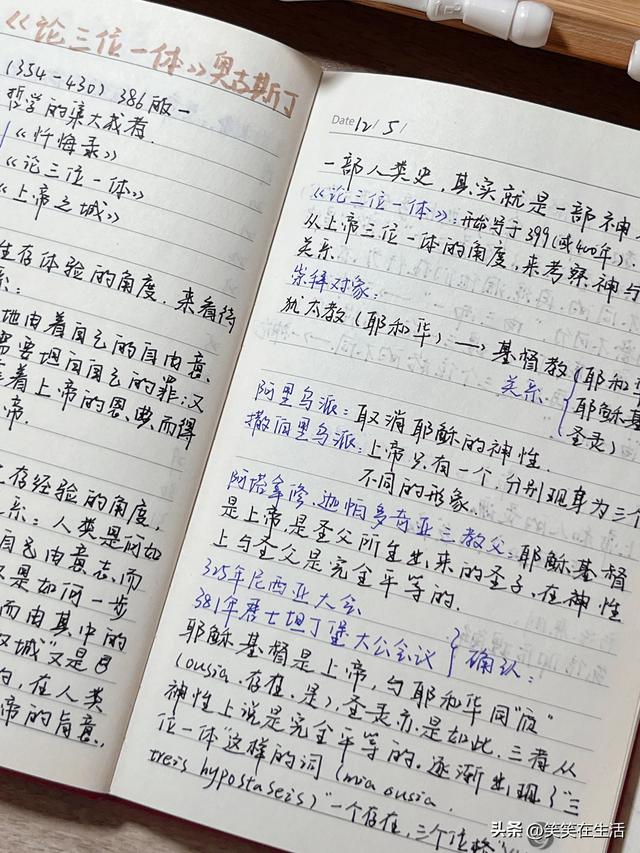 《论三位一体》奥古斯丁
(354-430) 386皈一
哲学的集大成者.
《忏悔录》
《论三位一体》
《上帝之城》
生存体验的角度, 来看待
系:
地由着自己的自由意.
需要坦白自己的罪;又
着上帝的恩典而得
帝.
存经验的角度,
系: 人类是何如
自己由意志, 而
又是如何一步
而由其中的
双城"又是
向, 在人类
帝的旨意.
Date 12/ 5/
一部人类史, 其实就是一部神
《论三位一体》: 开始写于399(或400年)
从上帝三位一体的角度, 来考察神与
关系.
崇拜对象:
犹太教(耶和华) → 基督教 { 耶和华
关系 耶稣基
圣灵)
阿里乌派: 取消耶稣的神性.
撒伯里乌派: 上帝只有一个, 分别现身为三个
不同的形象.
阿塔拿修、迦帕多奇亚三教父: 耶稣基督
是上帝是圣父所生出来的圣子, 在神性
上与圣父是完全平等的.
325年尼西亚大会
381年君士坦丁堡大公会议 } 确认:
耶稣基督是上帝, 与耶和华同"质"
(ousia. 存在. 是), 圣灵亦是如此. 三者从
神性上说是完全平等的. 逐渐出现了"三
位一体"这样的词 (mia ousia.
treis hypostaseis) "一个存在, 三个位格"
头条 @笑笑在生活